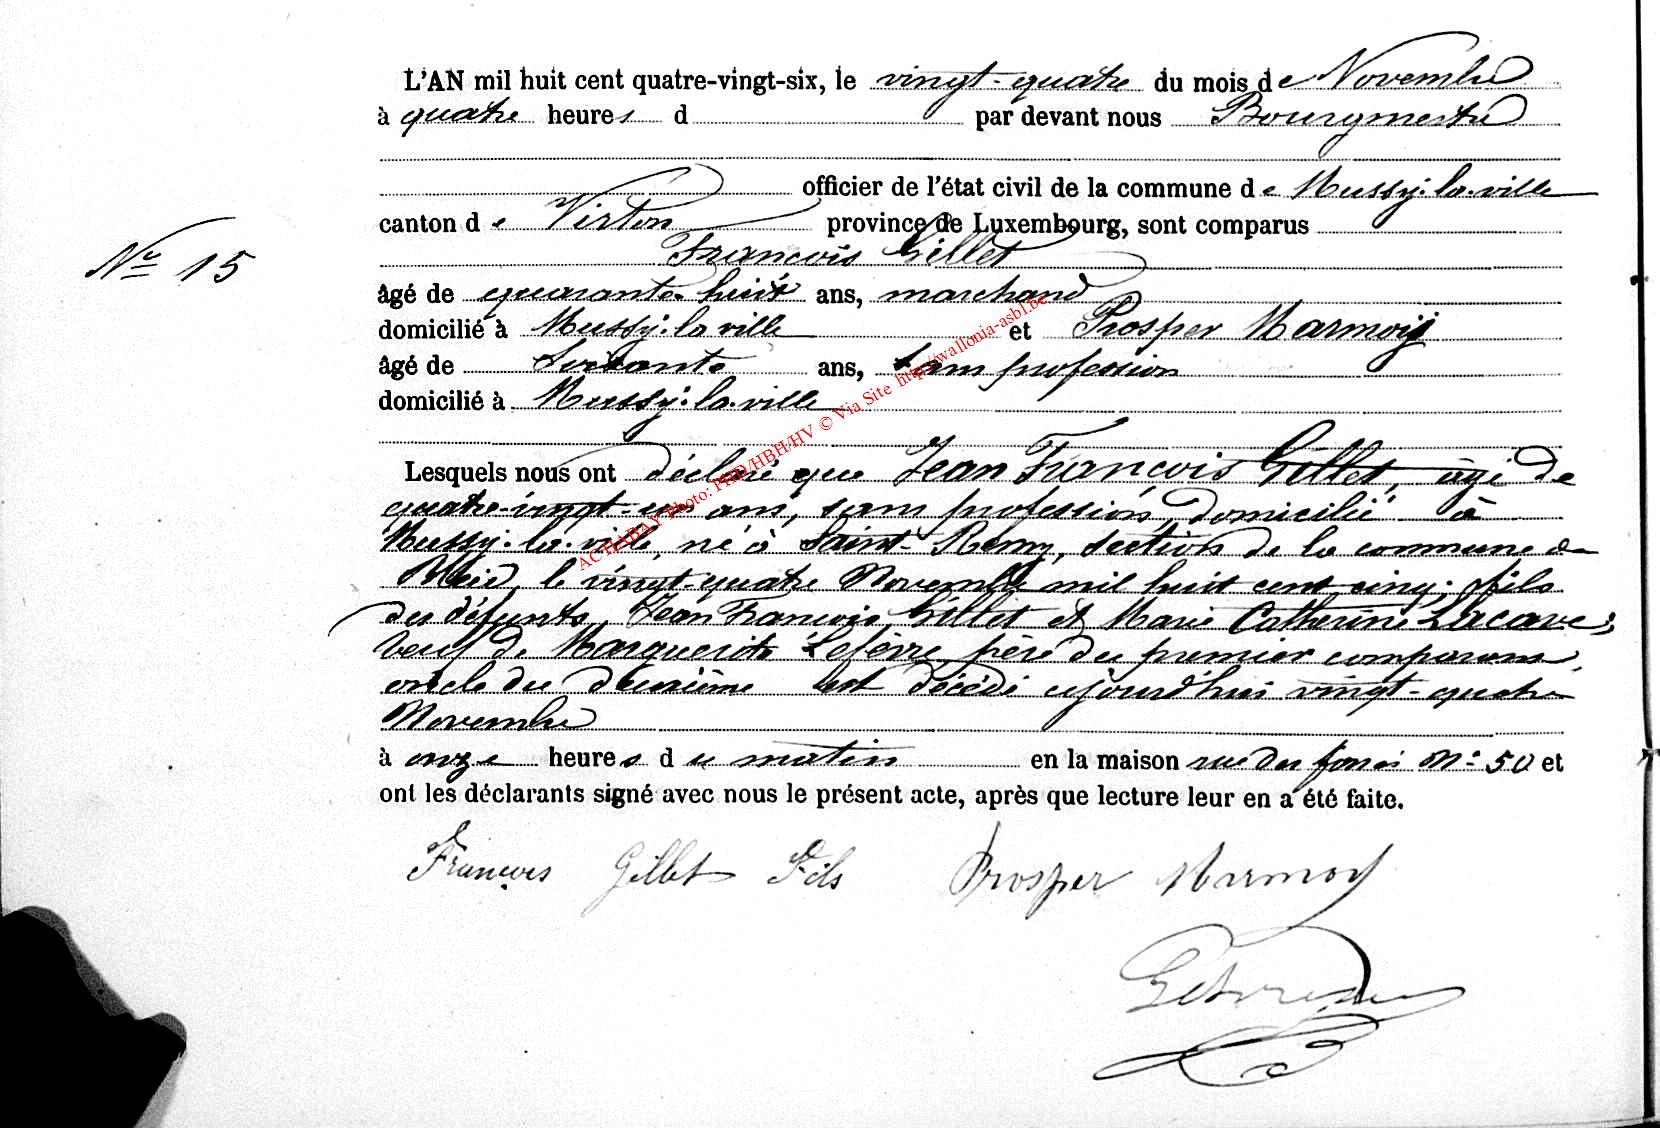 L'AN mil huit cent quatre-vingt-six, le vingt-quatre du mois de Novembre
à quatre heures d par devant nous Bourgmestre
officier de l'état civil de la commune de Mussy-la-ville
canton de Virton province de Luxembourg, sont comparus
N° 15
François Gillet
âgé de quarante-huit ans, marchand
domicilié à Mussy-la ville et Prosper Marmoÿ
âgé de Soixante ans, sans profession
domicilié à Mussy-la-ville
Lesquels nous ont déclaré que Jean François Gillet, âgé de
quatre-vingt-un ans, sans profession domicilié à
Mussy-la-ville, né à Saint-Remy, section de la commune de
Bleid, le vingt-quatre Novembre mil huit cent cinq; fils
des défunts, Jean François Gillet et Marie Catherine Lacave;
veuf de Marguerite Lefèvre, père du premier comparant,
oncle du deuxième est décédé ujourd'hui vingt-quatre
Novembre
à onze heures du matin en la maison rue des N° 50 et
ont les déclarants signé avec nous le présent acte, après que lecture leur en a été faite.
François Gillet Fils Prosper Marmoy
ACTHABAY Photo: PHD/HBH/HV © Via Site http://wallonia-asbl.be